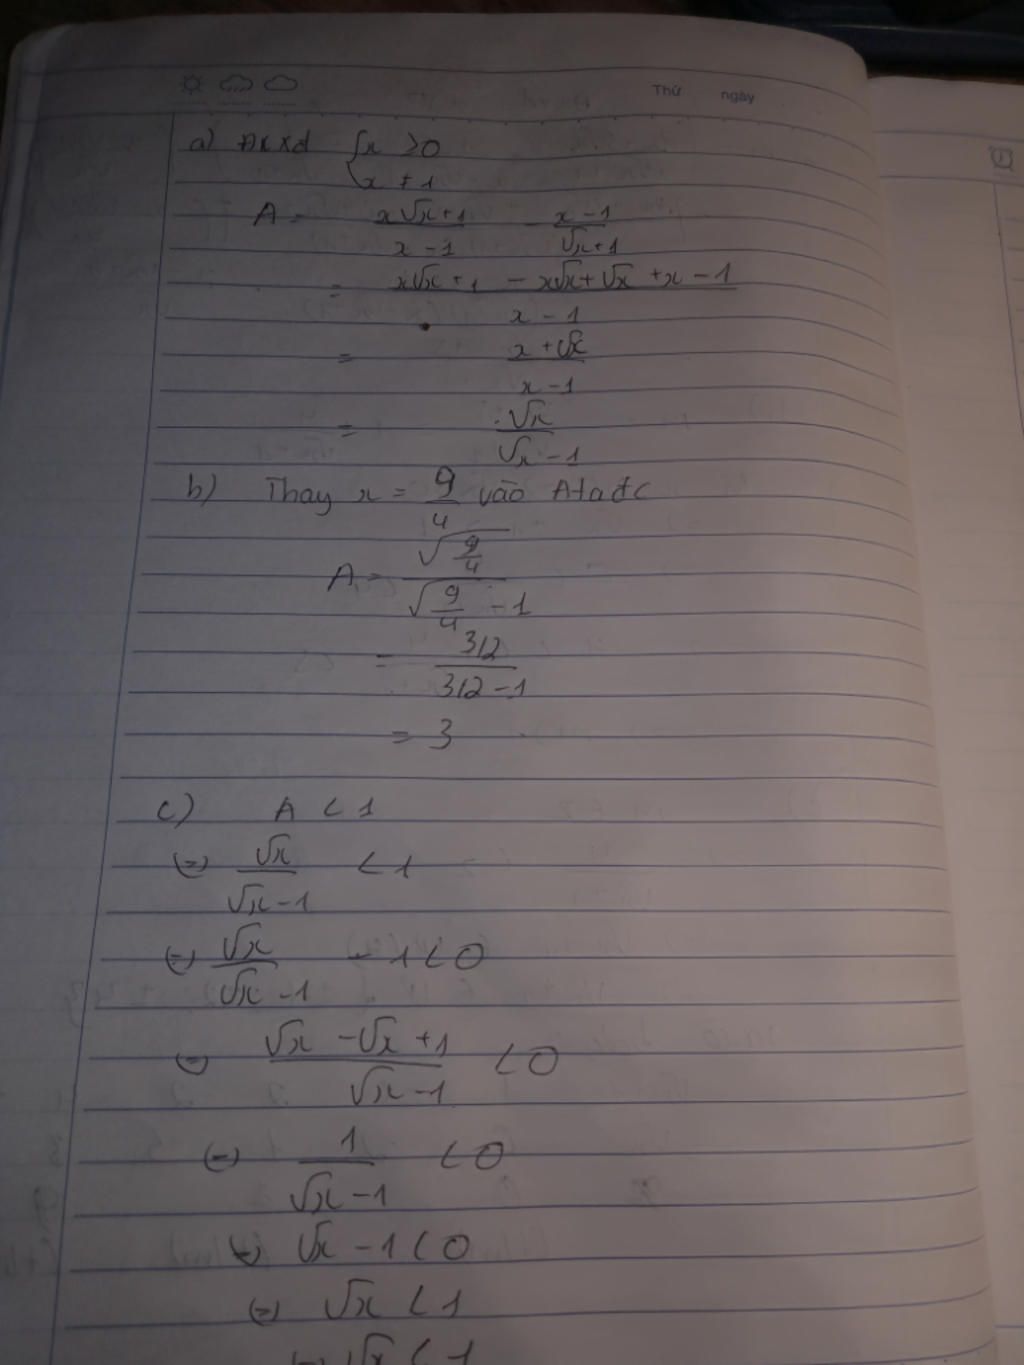 Thứ ngày
a) ĐKXĐ { x ≥ 0
x ≠ 1
A = \frac{x√x + 1}{x - 1} - \frac{x - 1}{√x + 1}
= \frac{x√x + 1 - x√x + √x + x - 1}{x - 1}
= \frac{x + √x}{x - 1}
= \frac{√x}{√x - 1}
b) Thay x = \frac{9}{4} vào A ta đc
A = \frac{\sqrt{\frac{9}{4}}}{\sqrt{\frac{9}{4}} - 1}
= \frac{3/2}{3/2 - 1}
= 3
c) A < 1
(=) \frac{√x}{√x - 1} < 1
(=) \frac{√x}{√x - 1} - 1 < 0
(=) \frac{√x - √x + 1}{√x - 1} < 0
(=) \frac{1}{√x - 1} < 0
(=) √x - 1 < 0
(=) √x < 1
(=) √x < 1